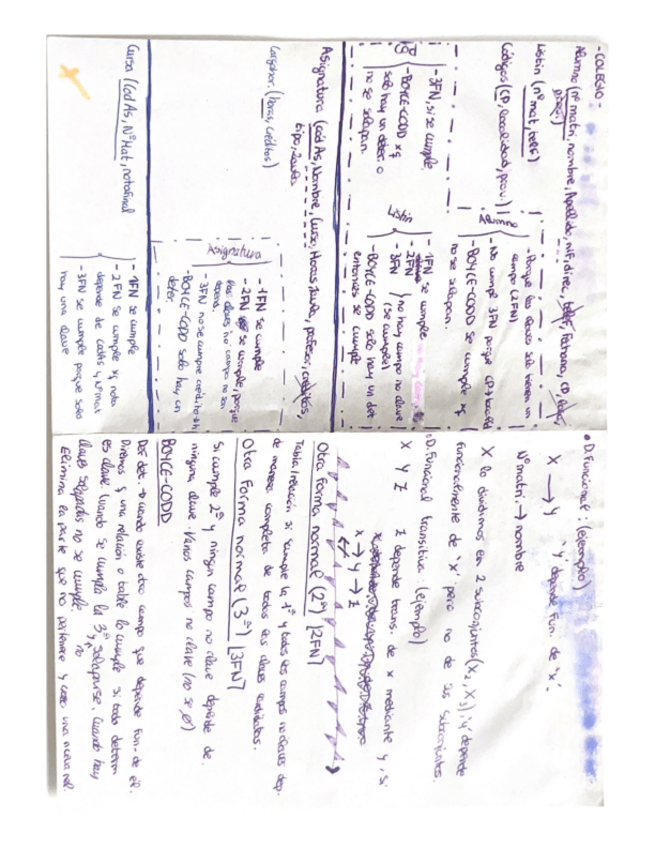 - COLEGIO -
Alumno (nº matri, nombre, Apellido, nif, direc, telef, Fechana, CP,
Listín (nº mat, telef)
Códigos (CP, localidad, prov.)
Alumno
- Porque las claves solo tienen un
campo (2FN)
- No cumple 3FN porque CP → localid
- BOYCE-CODD se cumple xq
no se solapan.
- 3FN, si se cumple
- BOYCE-CODD xq
solo hay un deter. o
no se solapan.
Listín
- 1FN se cumple
- 2FN
- 3FN
no hay campo no clave
(se cumple)
- BOYCE-CODD solo hay un det
entonces se cumple
Asignatura (cód As, Nombre, Curso, Horas, profesor, créditos,
tipo,
(horas, créditos)
Asignatura
- 1FN se cumple
- 2FN se cumple, porque
- 3FN no se cumple
- BOYCE-CODD solo hay un
deter.
Curso (Cod As, Nº Mat, notafinal
- 1FN se cumple
- 2FN se cumple xq nota
depende de codAs y Nº mat
- 3FN se cumple porque solo
hay una clave
• D. Funcional: (ejemplo)
X → Y 'y' depende fun. de 'x'.
Nº matri → nombre
X lo dividimos en 2 subconjuntos (X₂, X₃); 'y' depende
funcionalmente de 'x' pero no de sus subconjuntos.
• D. Funcional transitiva: (ejemplo)
X Y Z Z depende trans. de x mediante y, si
X → Y → Z
Otra Forma normal (2ª) [2FN]
Tabla/relación si cumple la 1ª y todos los campos no claves dep.
de manera completa de todas las claves candidatas.
Otra Forma normal (3ª) [3FN]
Si cumple 2ª y ningún campo no clave depende de
ninguna clave. Varios campos no clave (no se Ø)
BOYCE-CODD
Def. det. → cuando existe otro campo que depende fun. de él.
Diremos q una relación o tabla lo cumple si todo determ
es clave. Cuando se cumpla la 3ª y no solaparse. Cuando hay
claves solapadas no se cumple.
Elimina la parte que no pertenece y crea una nueva rel.